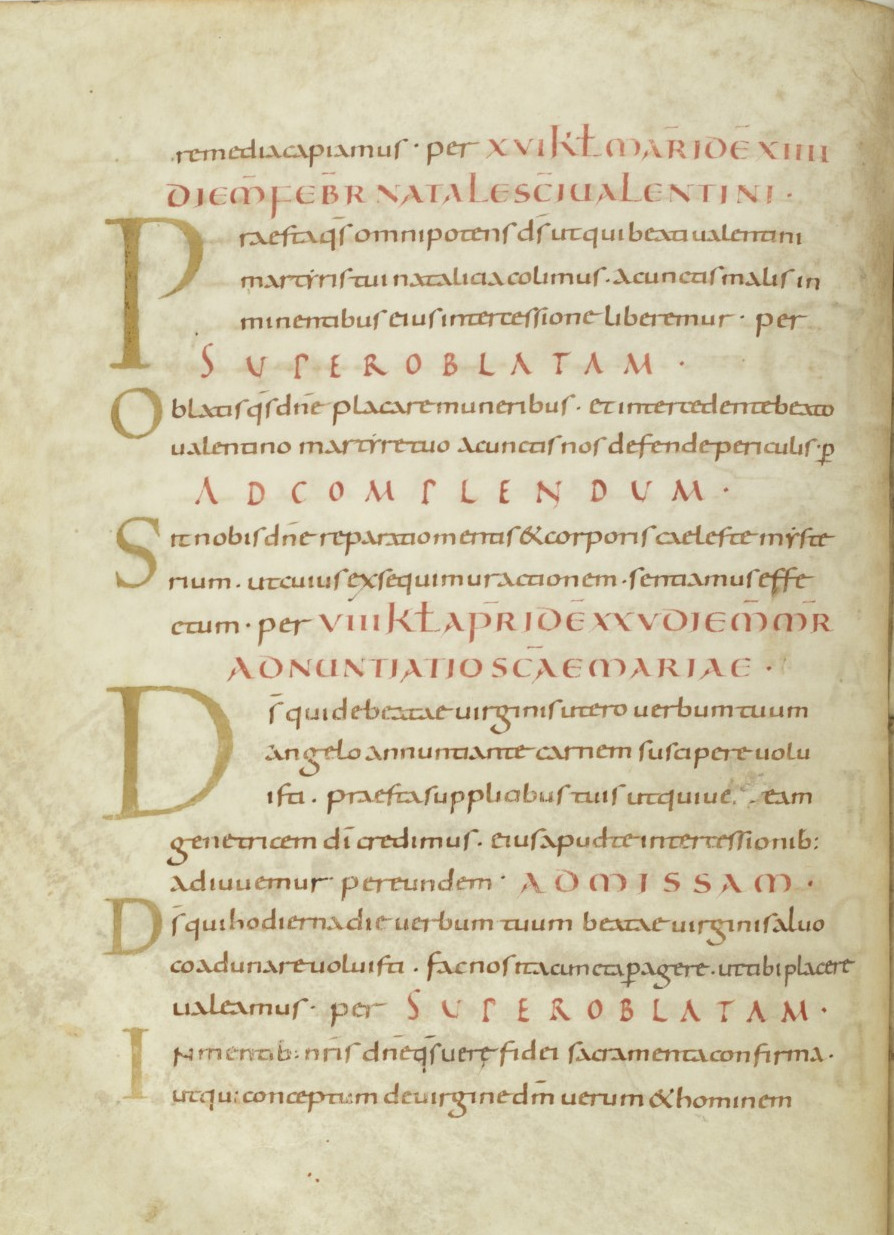 remedia capiamus · per XVI KŁ MAR̄ ID Ē XIIII
DIEM̄ FEBR̄ NATALE SC̄I UALENTINI ·
Praesta q̄s omnipotens d̄s ut qui beati ualentini
martyris tui natalicia colimus . A cunctis malis in
minentibus eius intercessione liberemur · per
SUPER OBLATAM ·
Oblatis q̄s dn̄e placare muneribus · et intercedente beato
ualentino martyre tuo A cunctis nos defende periculis · ꝑ
AD COMPLENDUM ·
Sit nobis dn̄e reparatio mentis & corporis caeleste myste
rium . ut cuius exsequimur actionem . sentiamus effe
ctum · per VIII KŁ APR̄ ID Ē XXV DIEM̄ MR̄
ADNUNTIATIO SC̄AE MARIAE ·
D̄s qui de beatae uirginis utero uerbum tuum
Angelo annuntiante carnem suscipere uolu
isti . praesta supplicibus tuis ut qui ue . eam
genetricem dī credimus . eius apud te intercessionib:
Adiuuemur per eundem · AD MISSAM ·
D̄s qui hodierna die uerbum tuum beatae uirginis aluo
coadunare uoluisti . fac nos ita cuncta ꝑagere . ut tibi placere
ualeamus · per SUPER OBLATAM ·
In mentib: nr̄is dn̄e q̄s uerę fidei sacramenta confirma ·
ut qui conceptum de uirgine dm̄ uerum & hominem